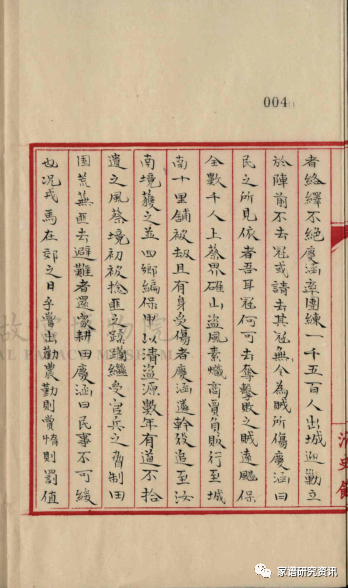 004
者絡繹不絕慶涵率團練一千五百人出城迎勦立
於陣前不去冠或請去其冠無令為賊所傷慶涵曰
民之所見依者吾耳冠何可去奪擊敗之賊遠颺保
全數千人上蔡界確山盜風素熾商賈負販行至城
南十里鋪被劫且有身受傷者慶涵遴幹役追至汝
南境獲之並四鄉編保甲以清盜源數年有道不拾
遺之風蔡境初被捻匪之蹂躪繼受官兵之脅制田
園荒蕪匪去避難者還家耕田慶涵曰民事不可緩
也况戎馬在郊之日乎嘗出勸農勤則賞惰則罰值
清史館
家谱研究资讯